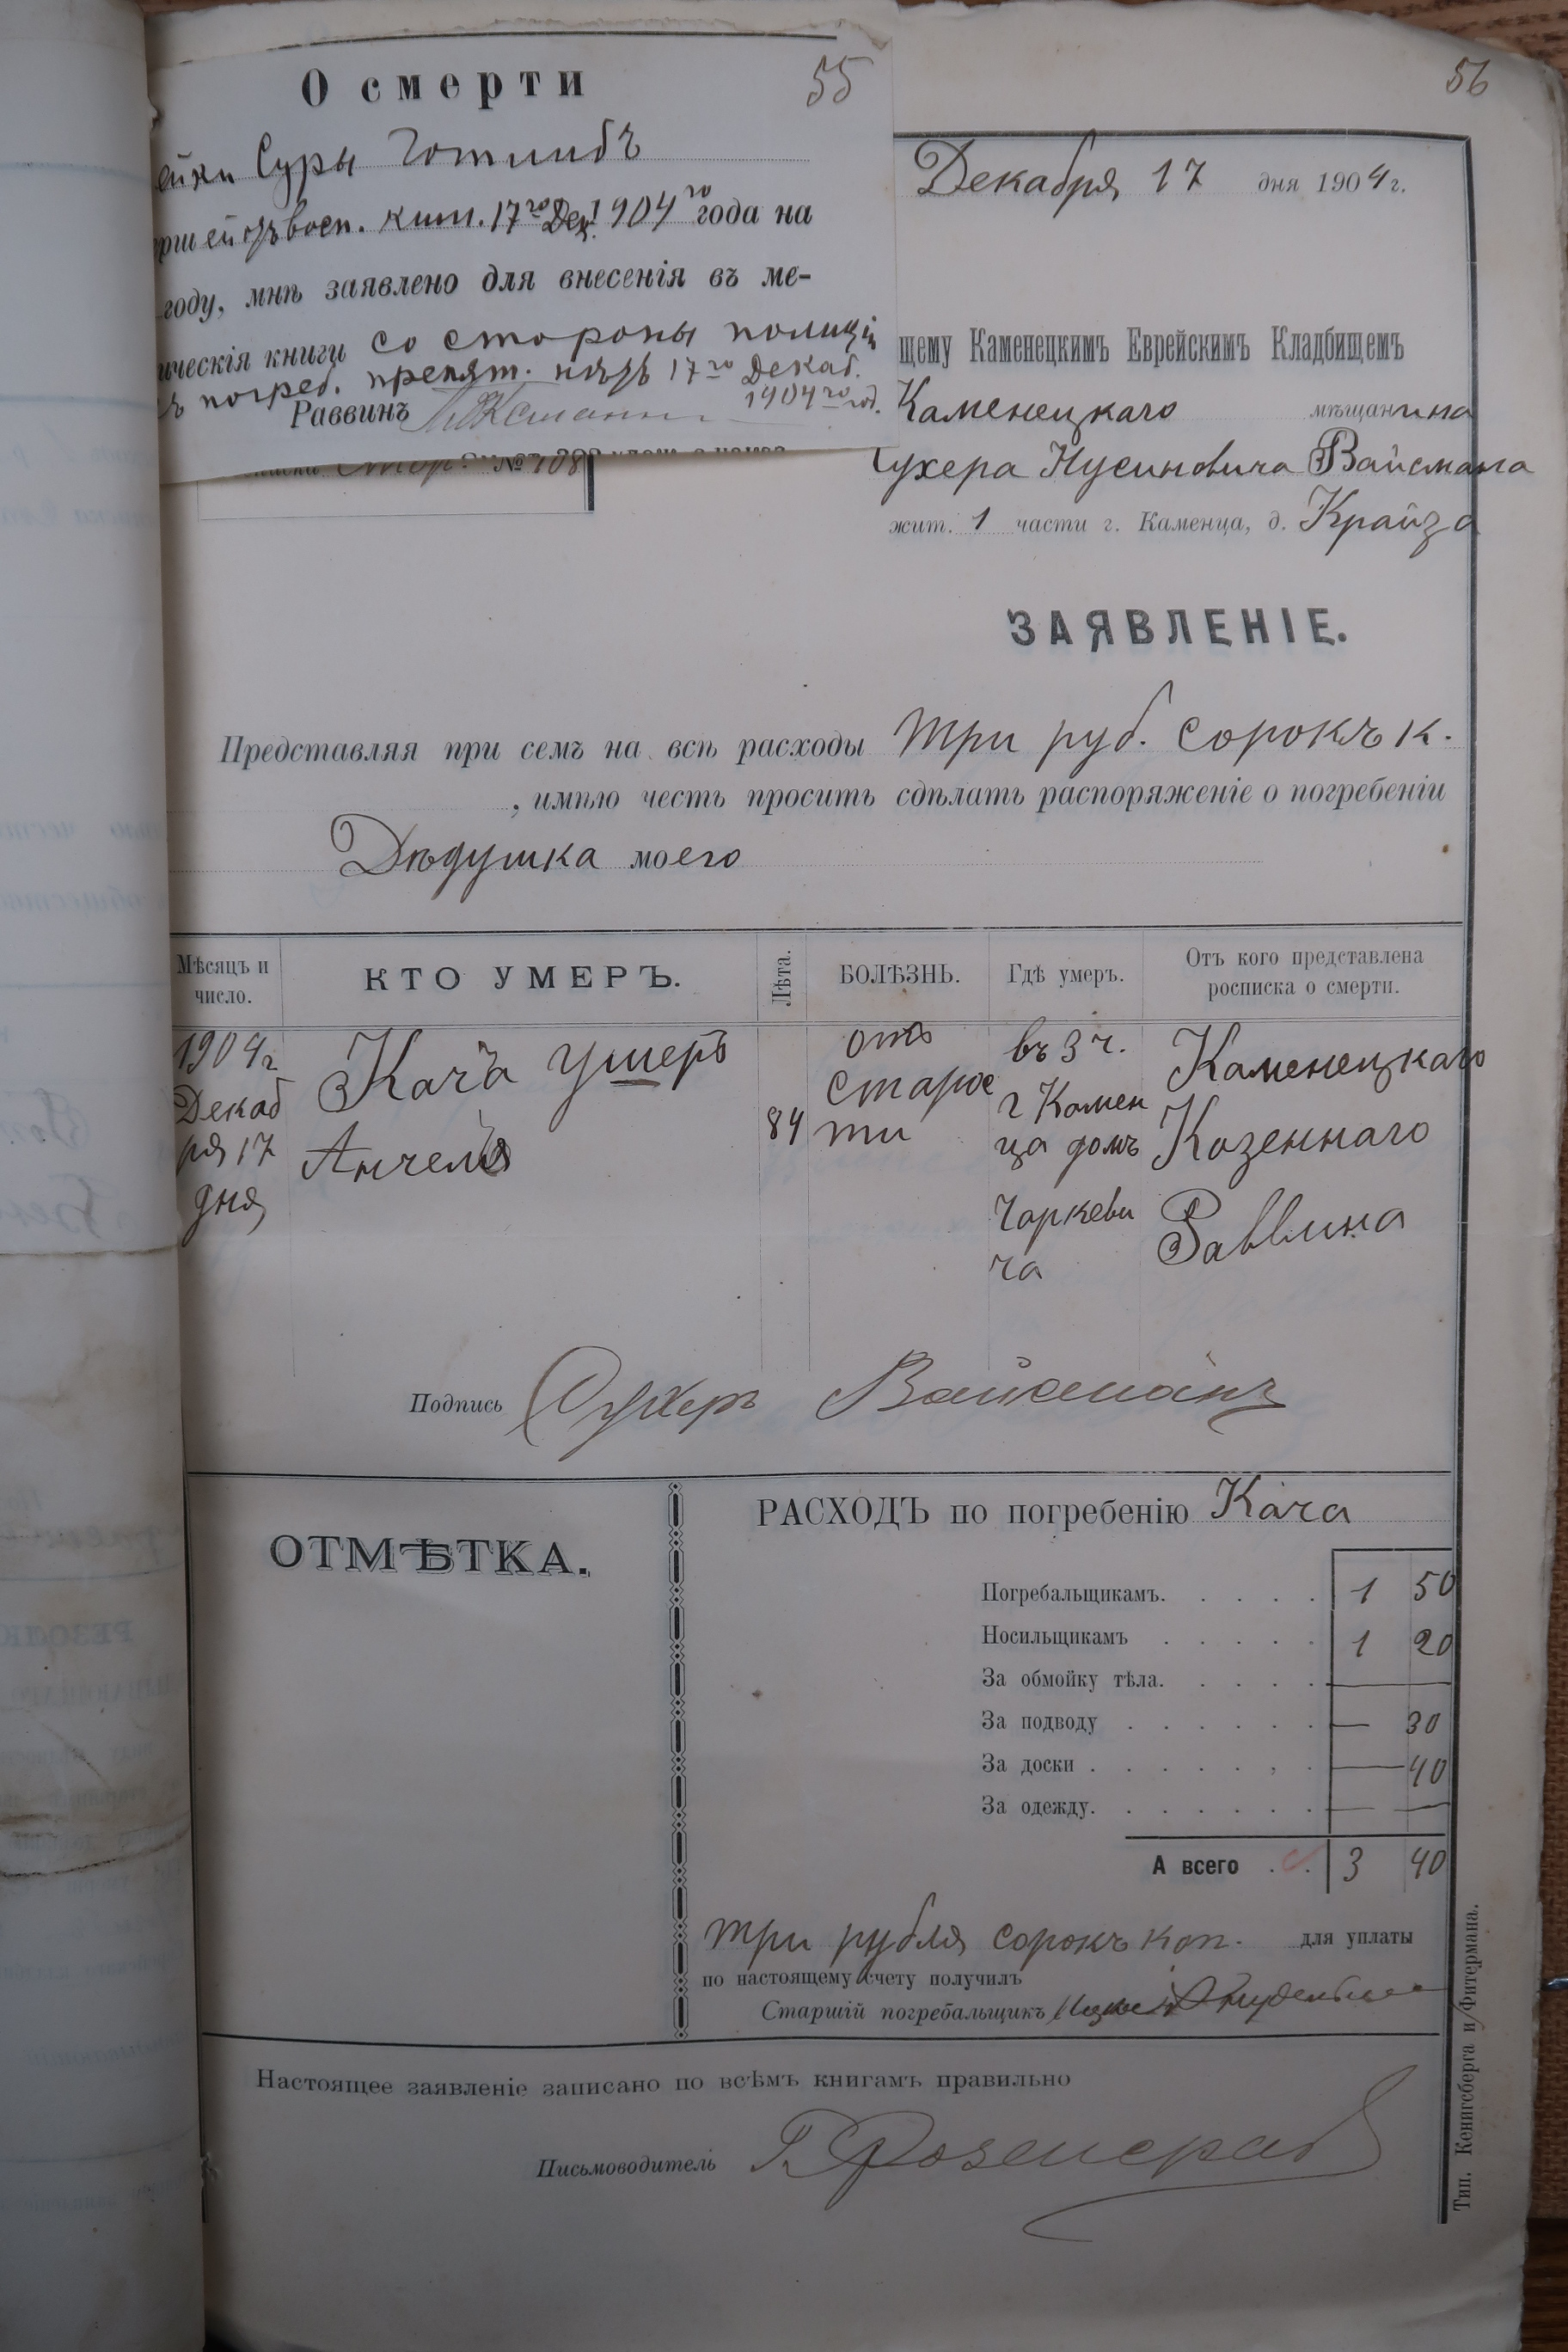 О смерти
55
ейки Суры Готлибъ
ршей отъ восп. киш. 17го Дек. 1904го года на
году, мнѣ заявлено для внесенія въ ме-
ическія книги со стороны полиціи
погреб. препят. нѣтъ 17го Декаб.
1904го год.
Раввинъ
№
56
Декабря 17 дня 1904 г.
щему Каменецкимъ Еврейскимъ Кладбищемъ
Каменецкаго мѣщанина
Сухера Нусиновича Вайсмана
жит. 1 части г. Каменца, д. Крайза
ЗАЯВЛЕНІЕ.
Представляя при семъ на всѣ расходы три руб. сорокъ к.
, имѣю честь просить сдѣлать распоряженіе о погребеніи
Дѣдушка моего
Мѣсяцъ и число.
КТО УМЕРЪ.
Лѣта.
БОЛѢЗНЬ.
Гдѣ умеръ.
Отъ кого представлена росписка о смерти.
1904 г
Декаб
ря 17
дня
Кача Ушеръ
Анчель
84
отъ
старос
ти
въ 3 ч.
г Камен
ца домъ
Чаркеви
ча
Каменецкаго
Козеннаго
Раввина
Подпись Сухеръ Вайсманъ
ОТМѢТКА.
РАСХОДЪ по погребенію Кача
Погребальщикамъ. . . . . 1 50
Носильщикамъ . . . . . 1 20
За обмойку тѣла. . . . . —
За подводу . . . . . . — 30
За доски . . . . . . . — 40
За одежду. . . . . . . — —
А всего . . 3 40
три рубля сорокъ коп. для уплаты
по настоящему счету получилъ
Старшій погребальщикъ
Настоящее заявленіе записано по всѣмъ книгамъ правильно
Письмоводитель
Тип. Кенигсберга и Фитермана.